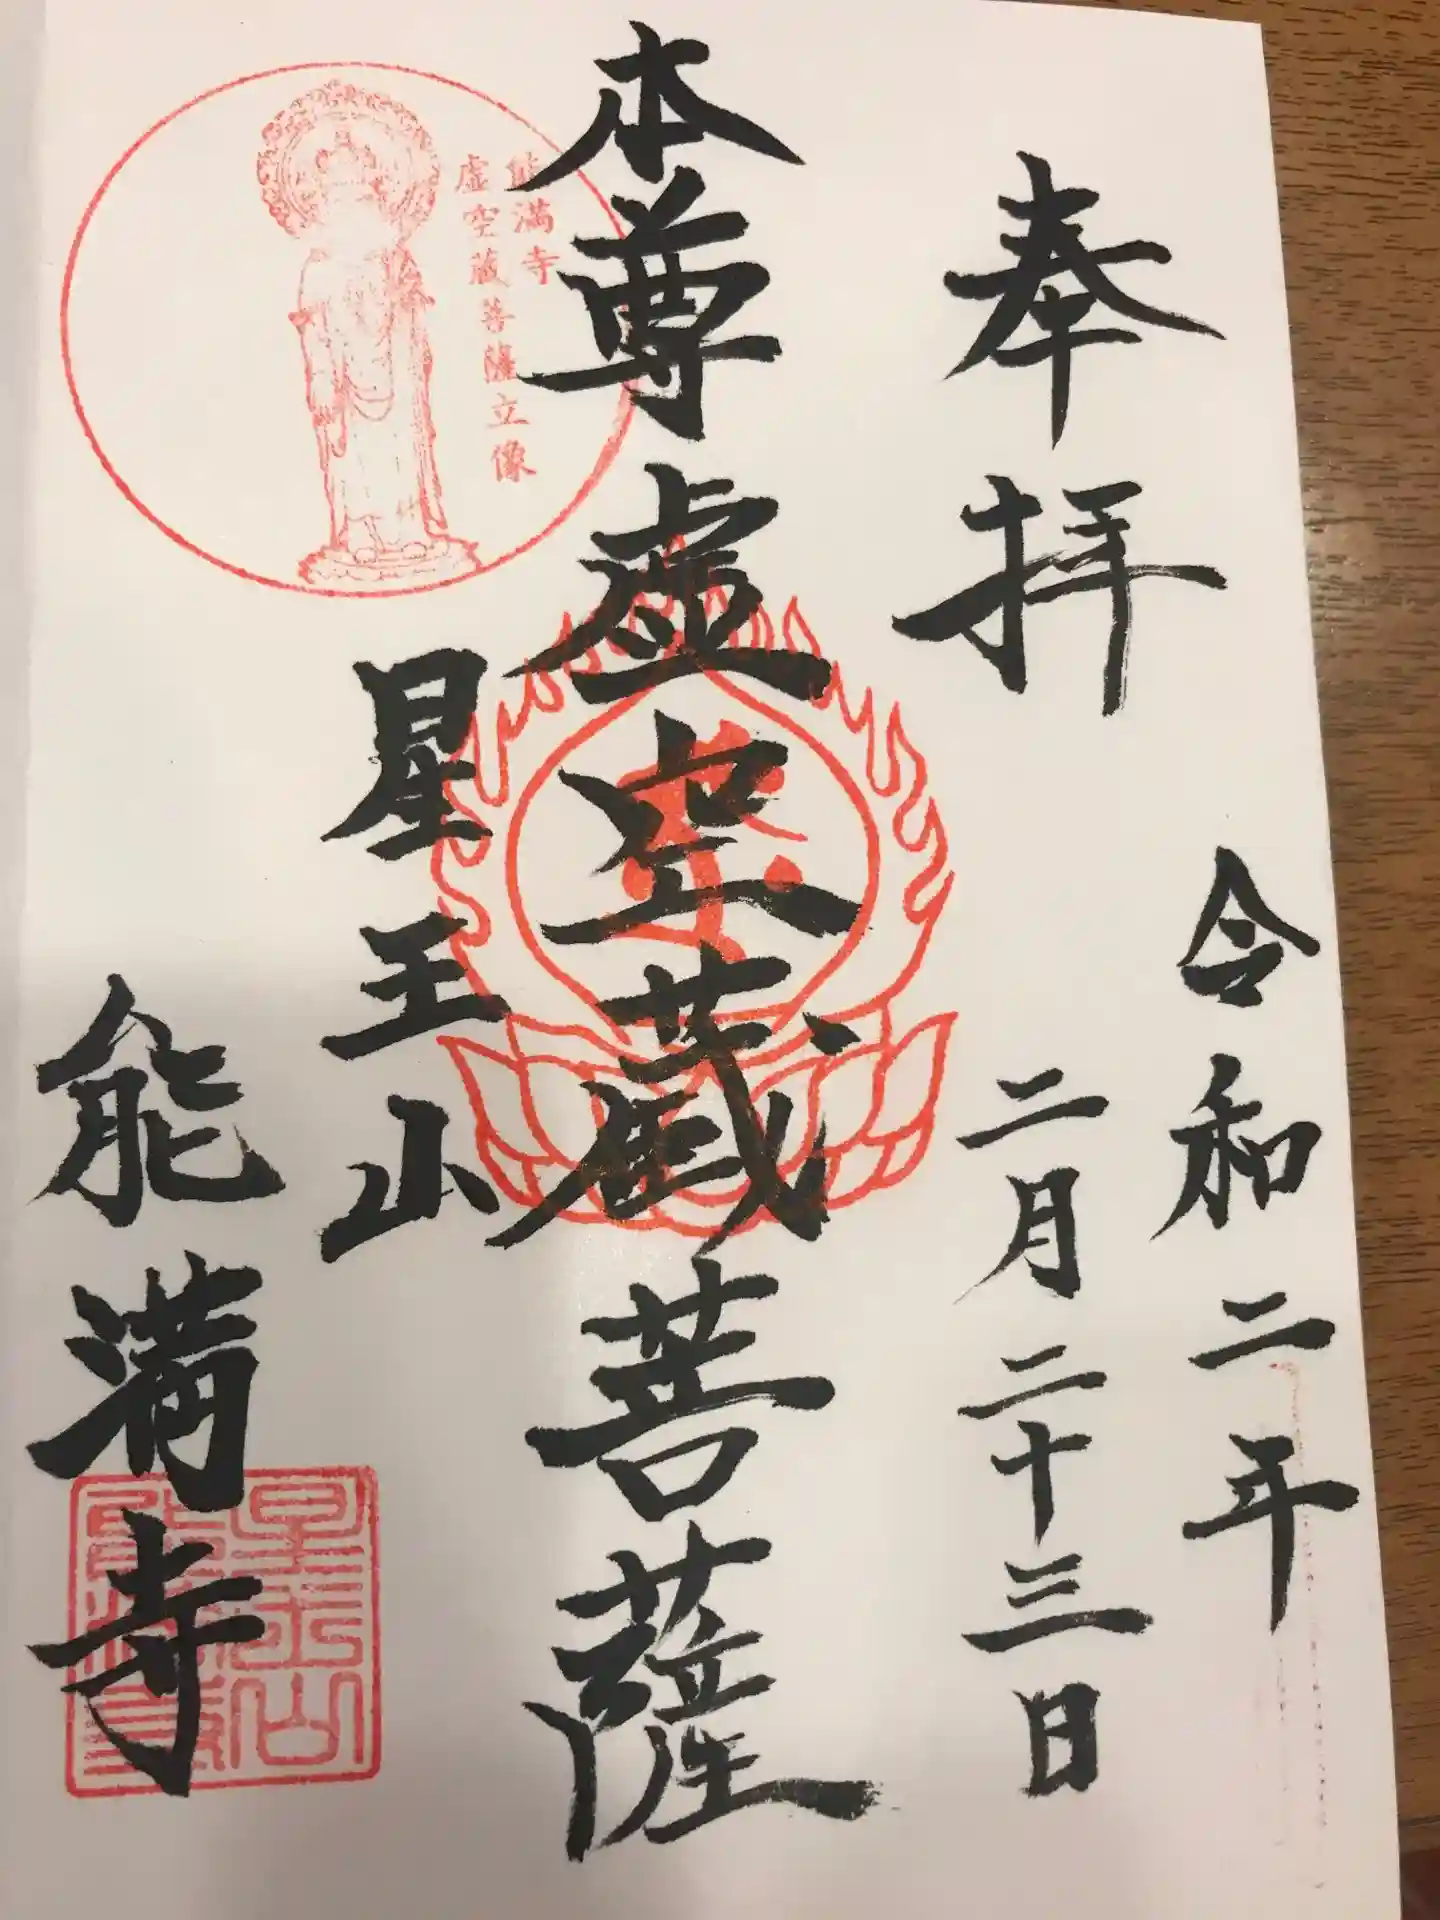 奉拝
令和二年
二月二十三日
本尊虚空蔵菩薩
能満寺
虚空蔵菩薩立像
星王山
能満寺
星王山